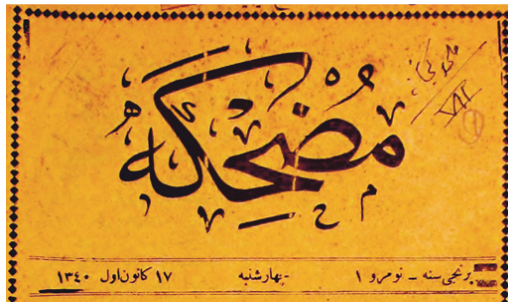 مضحكه
برنجی سنه – نومرو ١
چهارشنبه
١٧ كانون اول ١٣٤٠